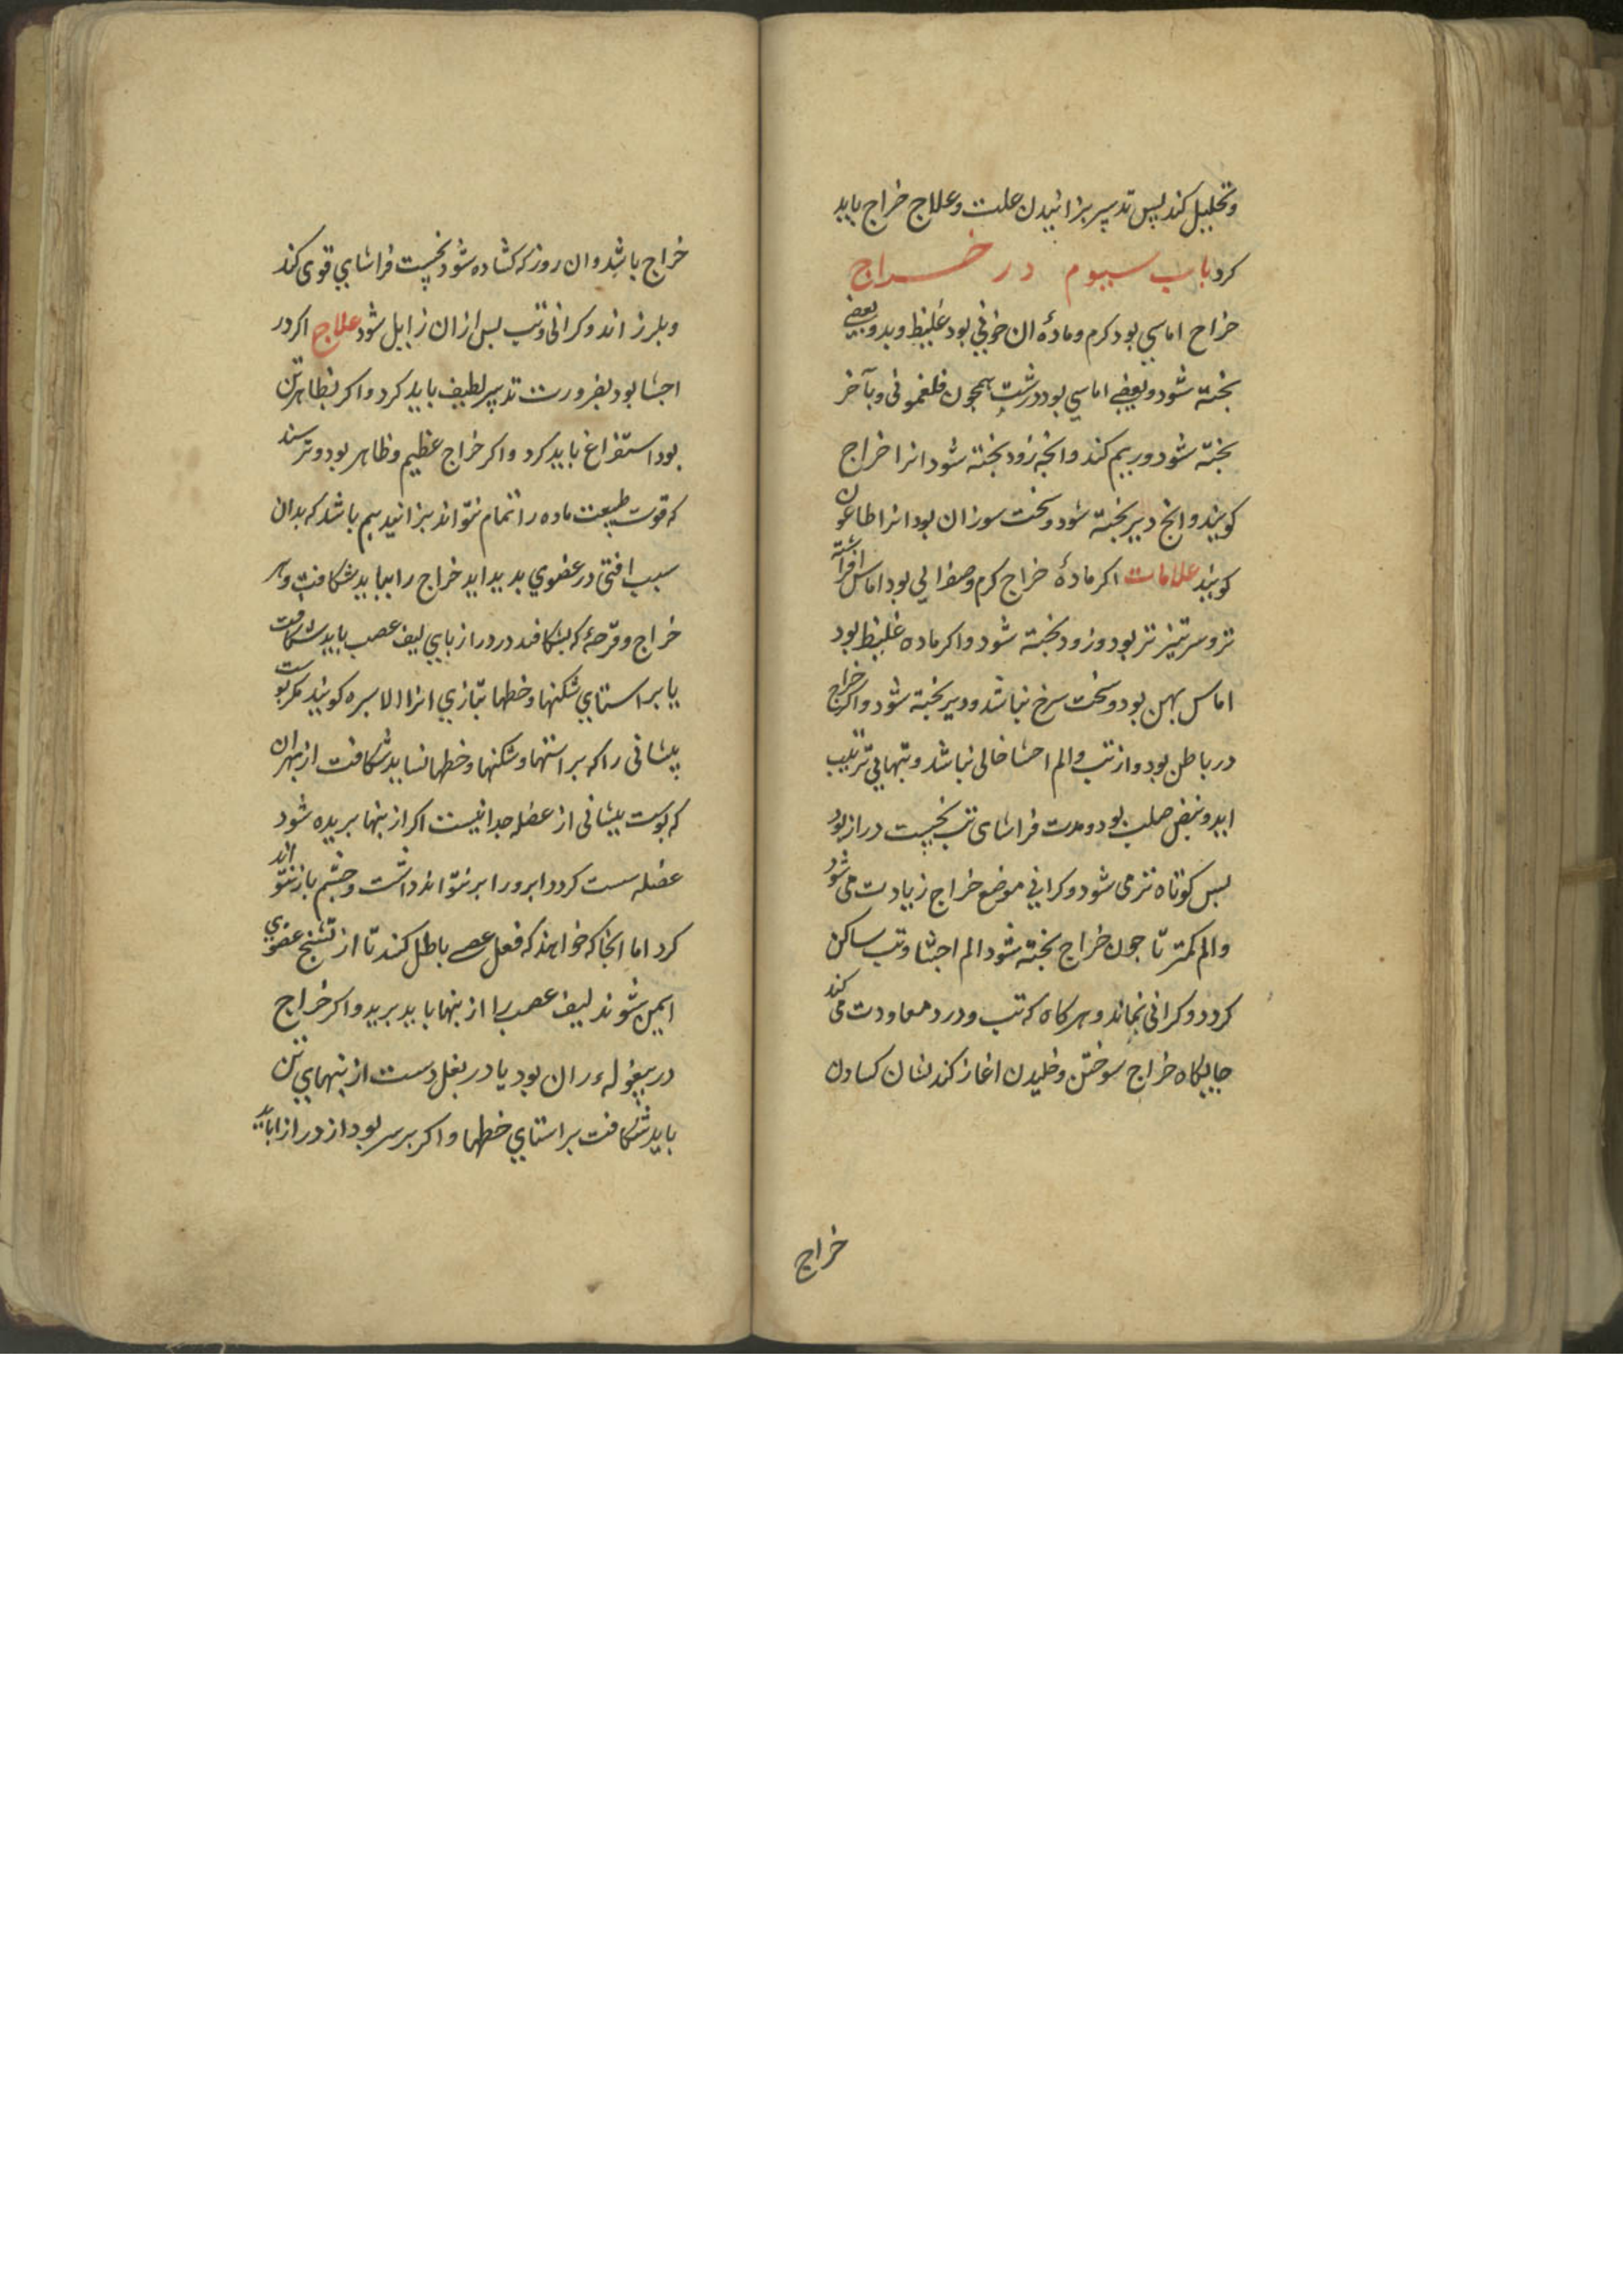 وتحلیل کند پس تدبیر بزانیدن علت وعلاج خراج باید
کرد باب سیوم در خراج
خراج اماسی بود کرم ومادۀ ان خونی بود غلیظ وبد وبعضی
بخته شود وبعضی اماسی بود درشت همچون فلغمونی وبآخر
بخته شود وریم کند وانچه زود بخته شود انرا خراج
کویند وانچ دیر بخته شود وسخت سوزان بود انرا طاعون
کویند علامات اکر مادۀ خراج کرم وصفرایی بود اماس افراشته
تر وسرتیز تر بود وزود بخته شود واکر ماده غلیظ بود
اماس بهن بود وسخت سرخ نباشد ودیر بخته شود واکر خراج
در باطن بود واز تب والم احشا خالی نباشد وتبهایی بی ترتیب
اید ونبض صلب بود ومدت فراشای تب نخست دراز بود
بس کوتاه تر می شود وکرانی موضع خراج زیادت می شود
والم کمتر تا جون خراج بخته شود الم احشا وتب ساکن
کردد وکرانی بماند وهرکاه که تب ودرد معاودت می کند
جایکاه خراج سوختن وخلیدن اغاز کند نشان کسادن
خراج
خراج باشد وان روز که کشاده شود نخست فراشای قوی کند
وبلرزاند وکرانی وتب بس ازان زایل شود علاج اکر در
احشا بود بضرورت تدبیر لطیف باید کرد واکر بظاهر تن
بود استفراغ باید کرد واکر خراج عظیم وظاهر بود وترسند
که قوت طبیعت ماده را تمام نتواند بزانید بیم باشد که بدان
سبب افتی در عضوی بدید اید خراج را بباید شکافت وهر
خراج وقرحۀ که بشکافند در درازبای لیف عصب باید شکافت
یا بر استای شکنها وخطها بتازی انرا الاسره کویند مکر بوست
بیشانی را که بر استها وشکنها وخطها نساید شکافت از بهر ان
که بوست بیشانی از عضله جدا نیست اکر از بنها بریده شود
عضله سست کردد ابرو را بر نتواند داشت وجشم باز نتواند
کرد اما انجا که خواهند که فعل عصبی باطل کنند تا از تشنج عضوی
ایمن شوند لیف عصب را از بنها باید برید واکر خراج
در بیغوله ران بود یا در بغل دست از بنهای تن
باید شکافت بر استای خطها واکر بر سر بود از درازا باید